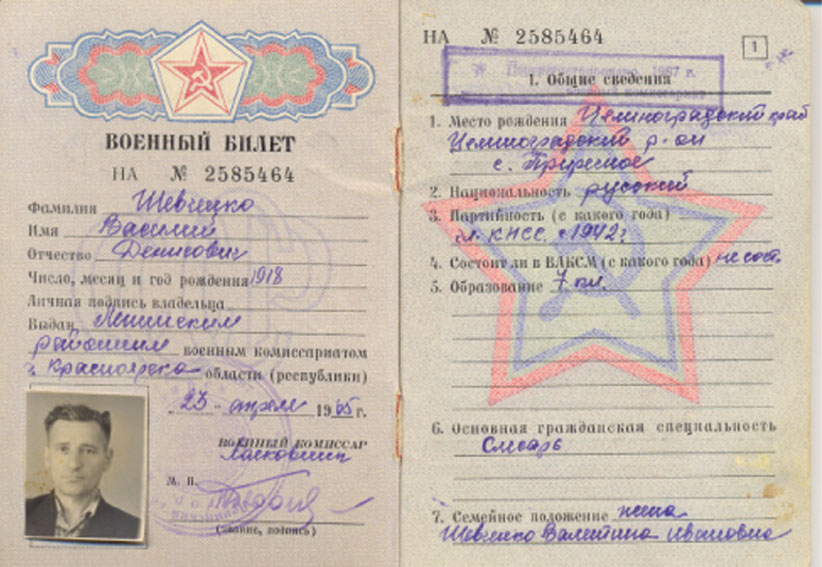 ВОЕННЫЙ БИЛЕТ
НА № 2585464
Фамилия Шевцко
Имя Василий
Отчество Денисович
Число, месяц и год рождения 1918
Личная подпись владельца
Выдан Ленинским
районным военным комиссариатом
г. Красноярска области (республики)
23 апреля 1965 г.
ВОЕННЫЙ КОМИССАР
М. П.
(звание, подпись)
НА № 2585464
1
1987 г.
I. Общие сведения
1. Место рождения Целиноградский край
Целиноградский р-он
с. Приречное
2. Национальность русский
3. Партийность (с какого года)
чл. КПСС с 1942 г
4. Состоял ли в ВЛКСМ (с какого года) не сост.
5. Образование 7 кл.
6. Основная гражданская специальность
Слесарь
7. Семейное положение жена
Валентина Ивановна